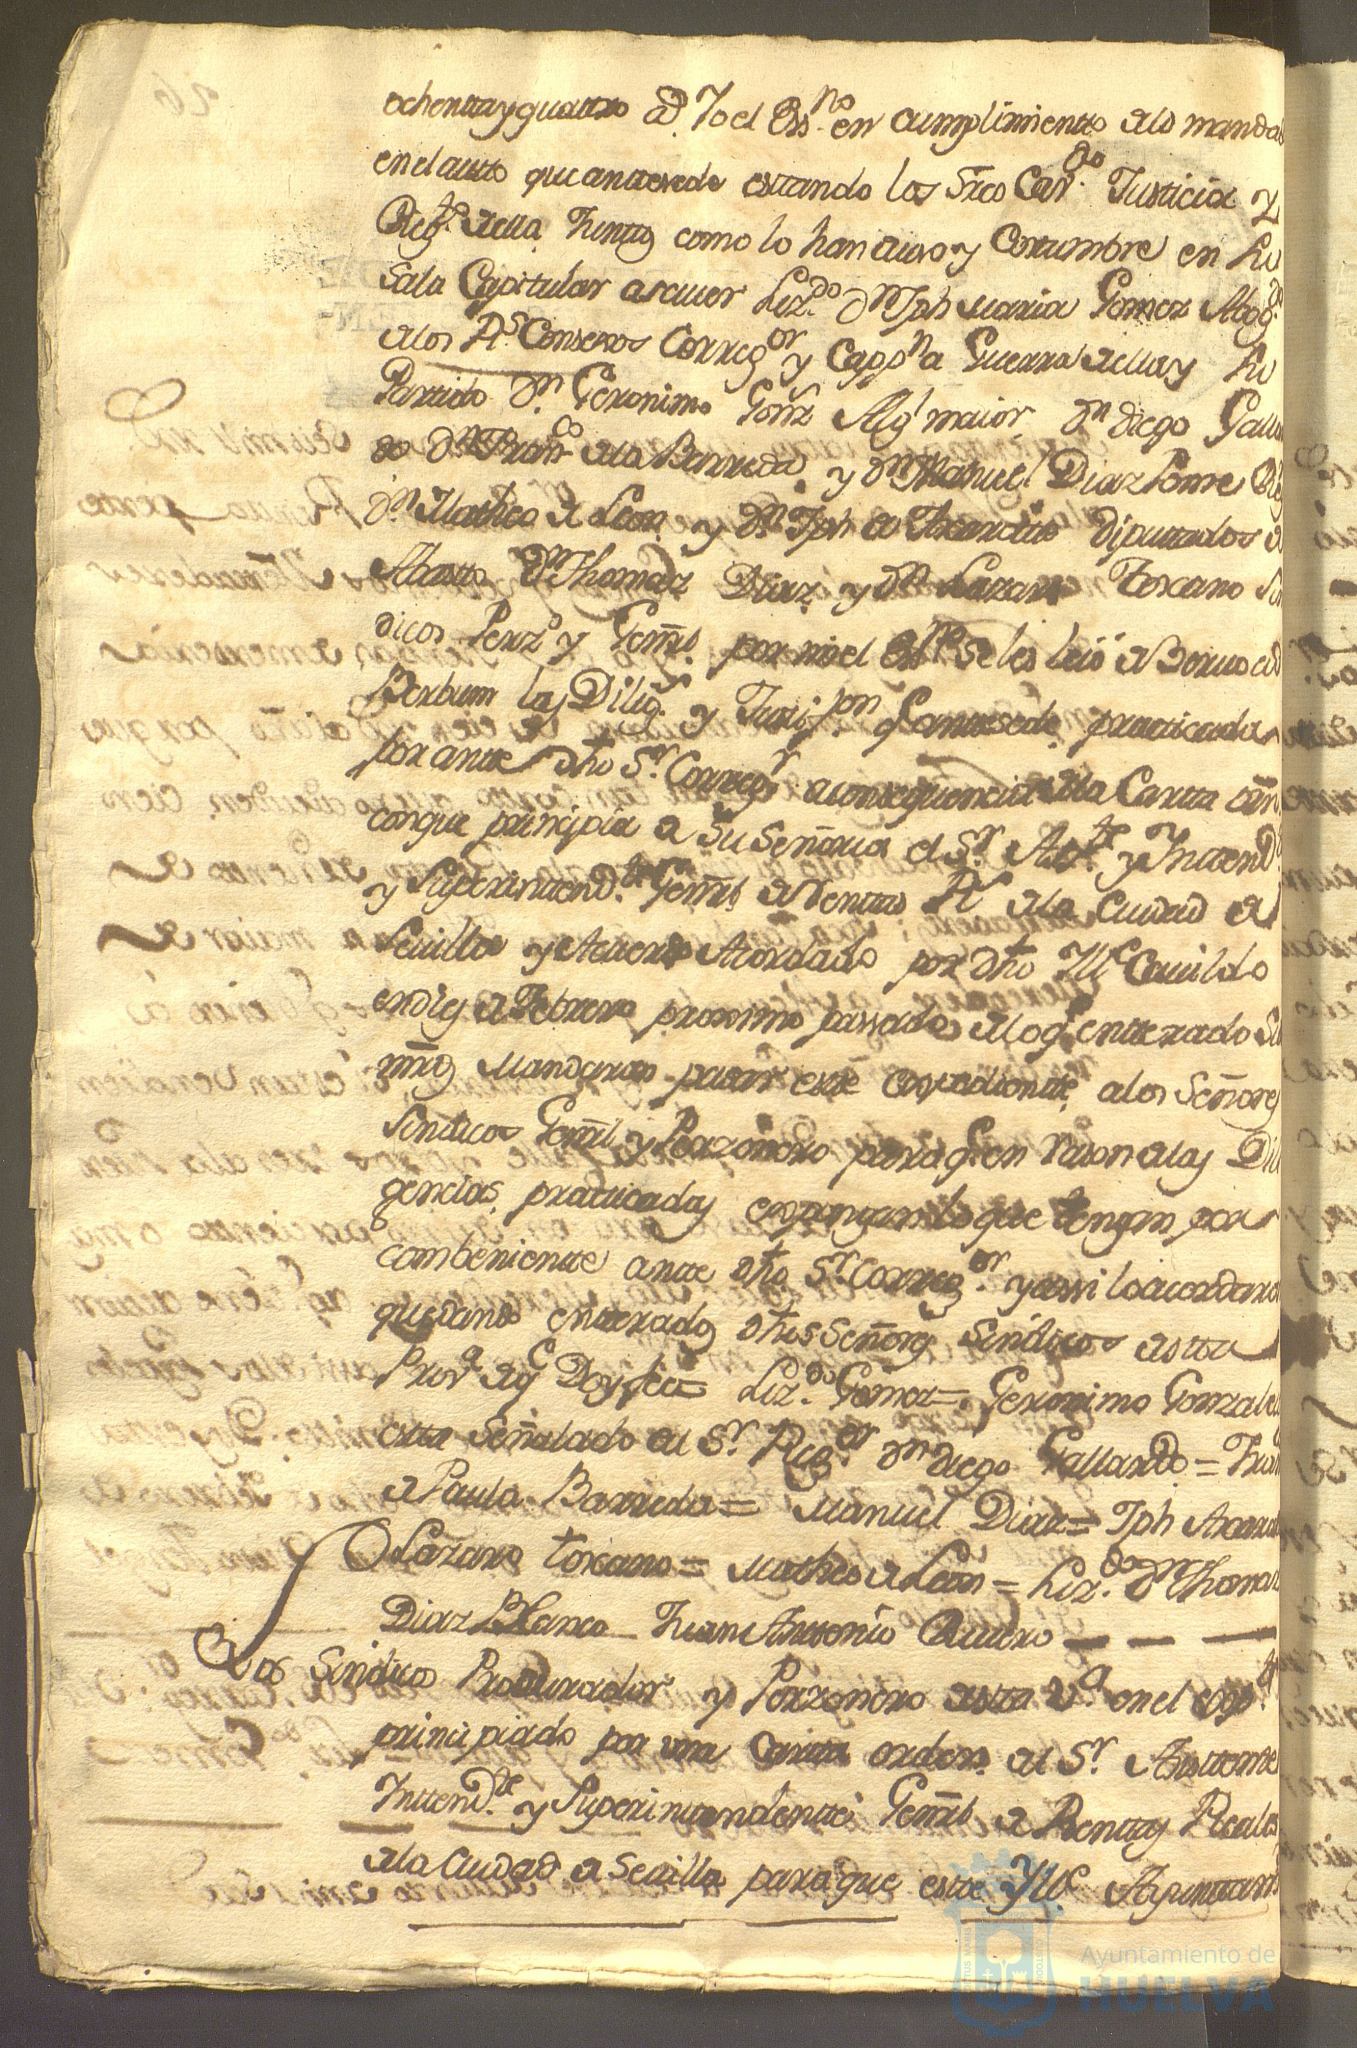 ochenta y quattro a.d Yo el Essno en cumplimiento a lo manda
en el autto que anttesede esttando los Sres Cavdo Justicia y
Regto de ella Junttos como lo han de uso y Costumbre en Su
Sala Capitular a saver Lizdo Dn Jph Maria Gomez Abogdo
a los Rs Consejos Corregor y Cappn a Guerra de ella y Su
Partido Dn Geronimo Gonz Algl maior Dn Diego Galla
do Dn Franco de la Barreda y Dn Manuel Diaz Pome Re
Dn Matheo de Leon y Dn Jph de diputtados de
Abasto Dn Thomas Diaz y Dn Lazaro Toscano Sin
dicos Perzo y Genrl por mi el Essno se les leió de Berbo ad
Berbum las Dilig y Jurijpn q anttesede practicada
por antte dho Sr Corregr a consequencia de la Cartta orn
con que principia de Su Señoria el Sr Astte y Inttend
y Superinttendte Genrl de Renttas Rs de la Ciudad de
Sevilla y Acuerdo Acordado por dho Ille Cavildo
en diez de Febrero proximo passado de lo q entterado Su
mrds Mandaron pasar estte expedientte a los Señores
Sindicos Genrl y Perzonero para q en rason de las Dili
gencias practticadas expongan lo que tengan por
combenientte antte dho Sr Corregor y assi lo acordaro
quedando entterados dhos Señores Sindicos de esta
Prova de q Doy fee = Lizdo Gomez = Geronimo Gonzales
estta Señalado del Sr Regor Dn Diego Gallardo = Fran
de Paula Barreda = Manuel Diaz = Jph
Lazaro toscano = Matheo de León = Lizdo Dn Thomas
Diaz Blanco = Juan Anttonio
Los Sindico Procurador y Perzonero de esta Va en el exptte
principiado por una Cartta orden del Sr Asisttente
Inttendte y Superinttendente Genrl de Renttas Reales
de la Ciudad de Sevilla para que estte Ylle Ayunttam
Ayuntamiento de
HUELVA